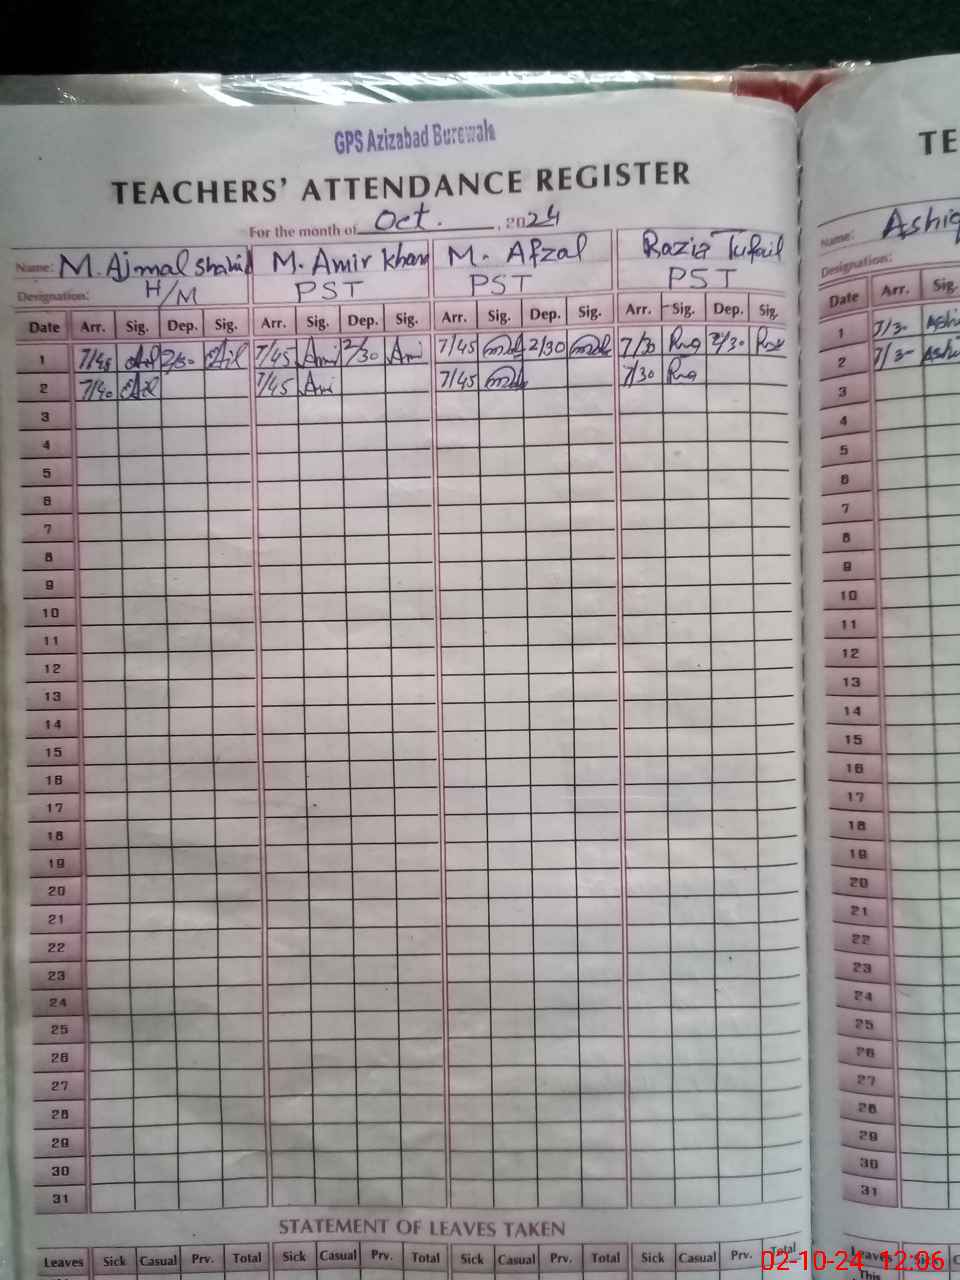 GPS Azizabad Burewala
TEACHERS' ATTENDANCE REGISTER
For the month of Oct. , 2024
Name: M. Ajmal Shahid M. Amir Khan M. Afzal Razia Tufail
Designation: H/M PST PST PST
Date Arr. Sig. Dep. Sig. Arr. Sig. Dep. Sig. Arr. Sig. Dep. Sig. Arr. Sig. Dep. Sig.
1 7/45 2/30 7/45 Ami 2/30 Ami 7/45 2/30 7/30 2/30
2 7/40 7/45 Ami 7/45 7/30
3
4
5
6
7
8
9
10
11
12
13
14
15
16
17
18
19
20
21
22
23
24
25
26
27
28
29
30
31
STATEMENT OF LEAVES TAKEN
Leaves Sick Casual Prv. Total Sick Casual Prv. Total Sick Casual Prv. Total Sick Casual Prv. Total
TE
Name: Ashiq
Designation:
Date Arr. Sig.
1 7/3- Ashi
2 7/3- Ashi
3
4
5
6
7
8
9
10
11
12
13
14
15
16
17
18
19
20
21
22
23
24
25
26
27
28
29
30
31
Leaves Sick C
This
02-10-24 12:06